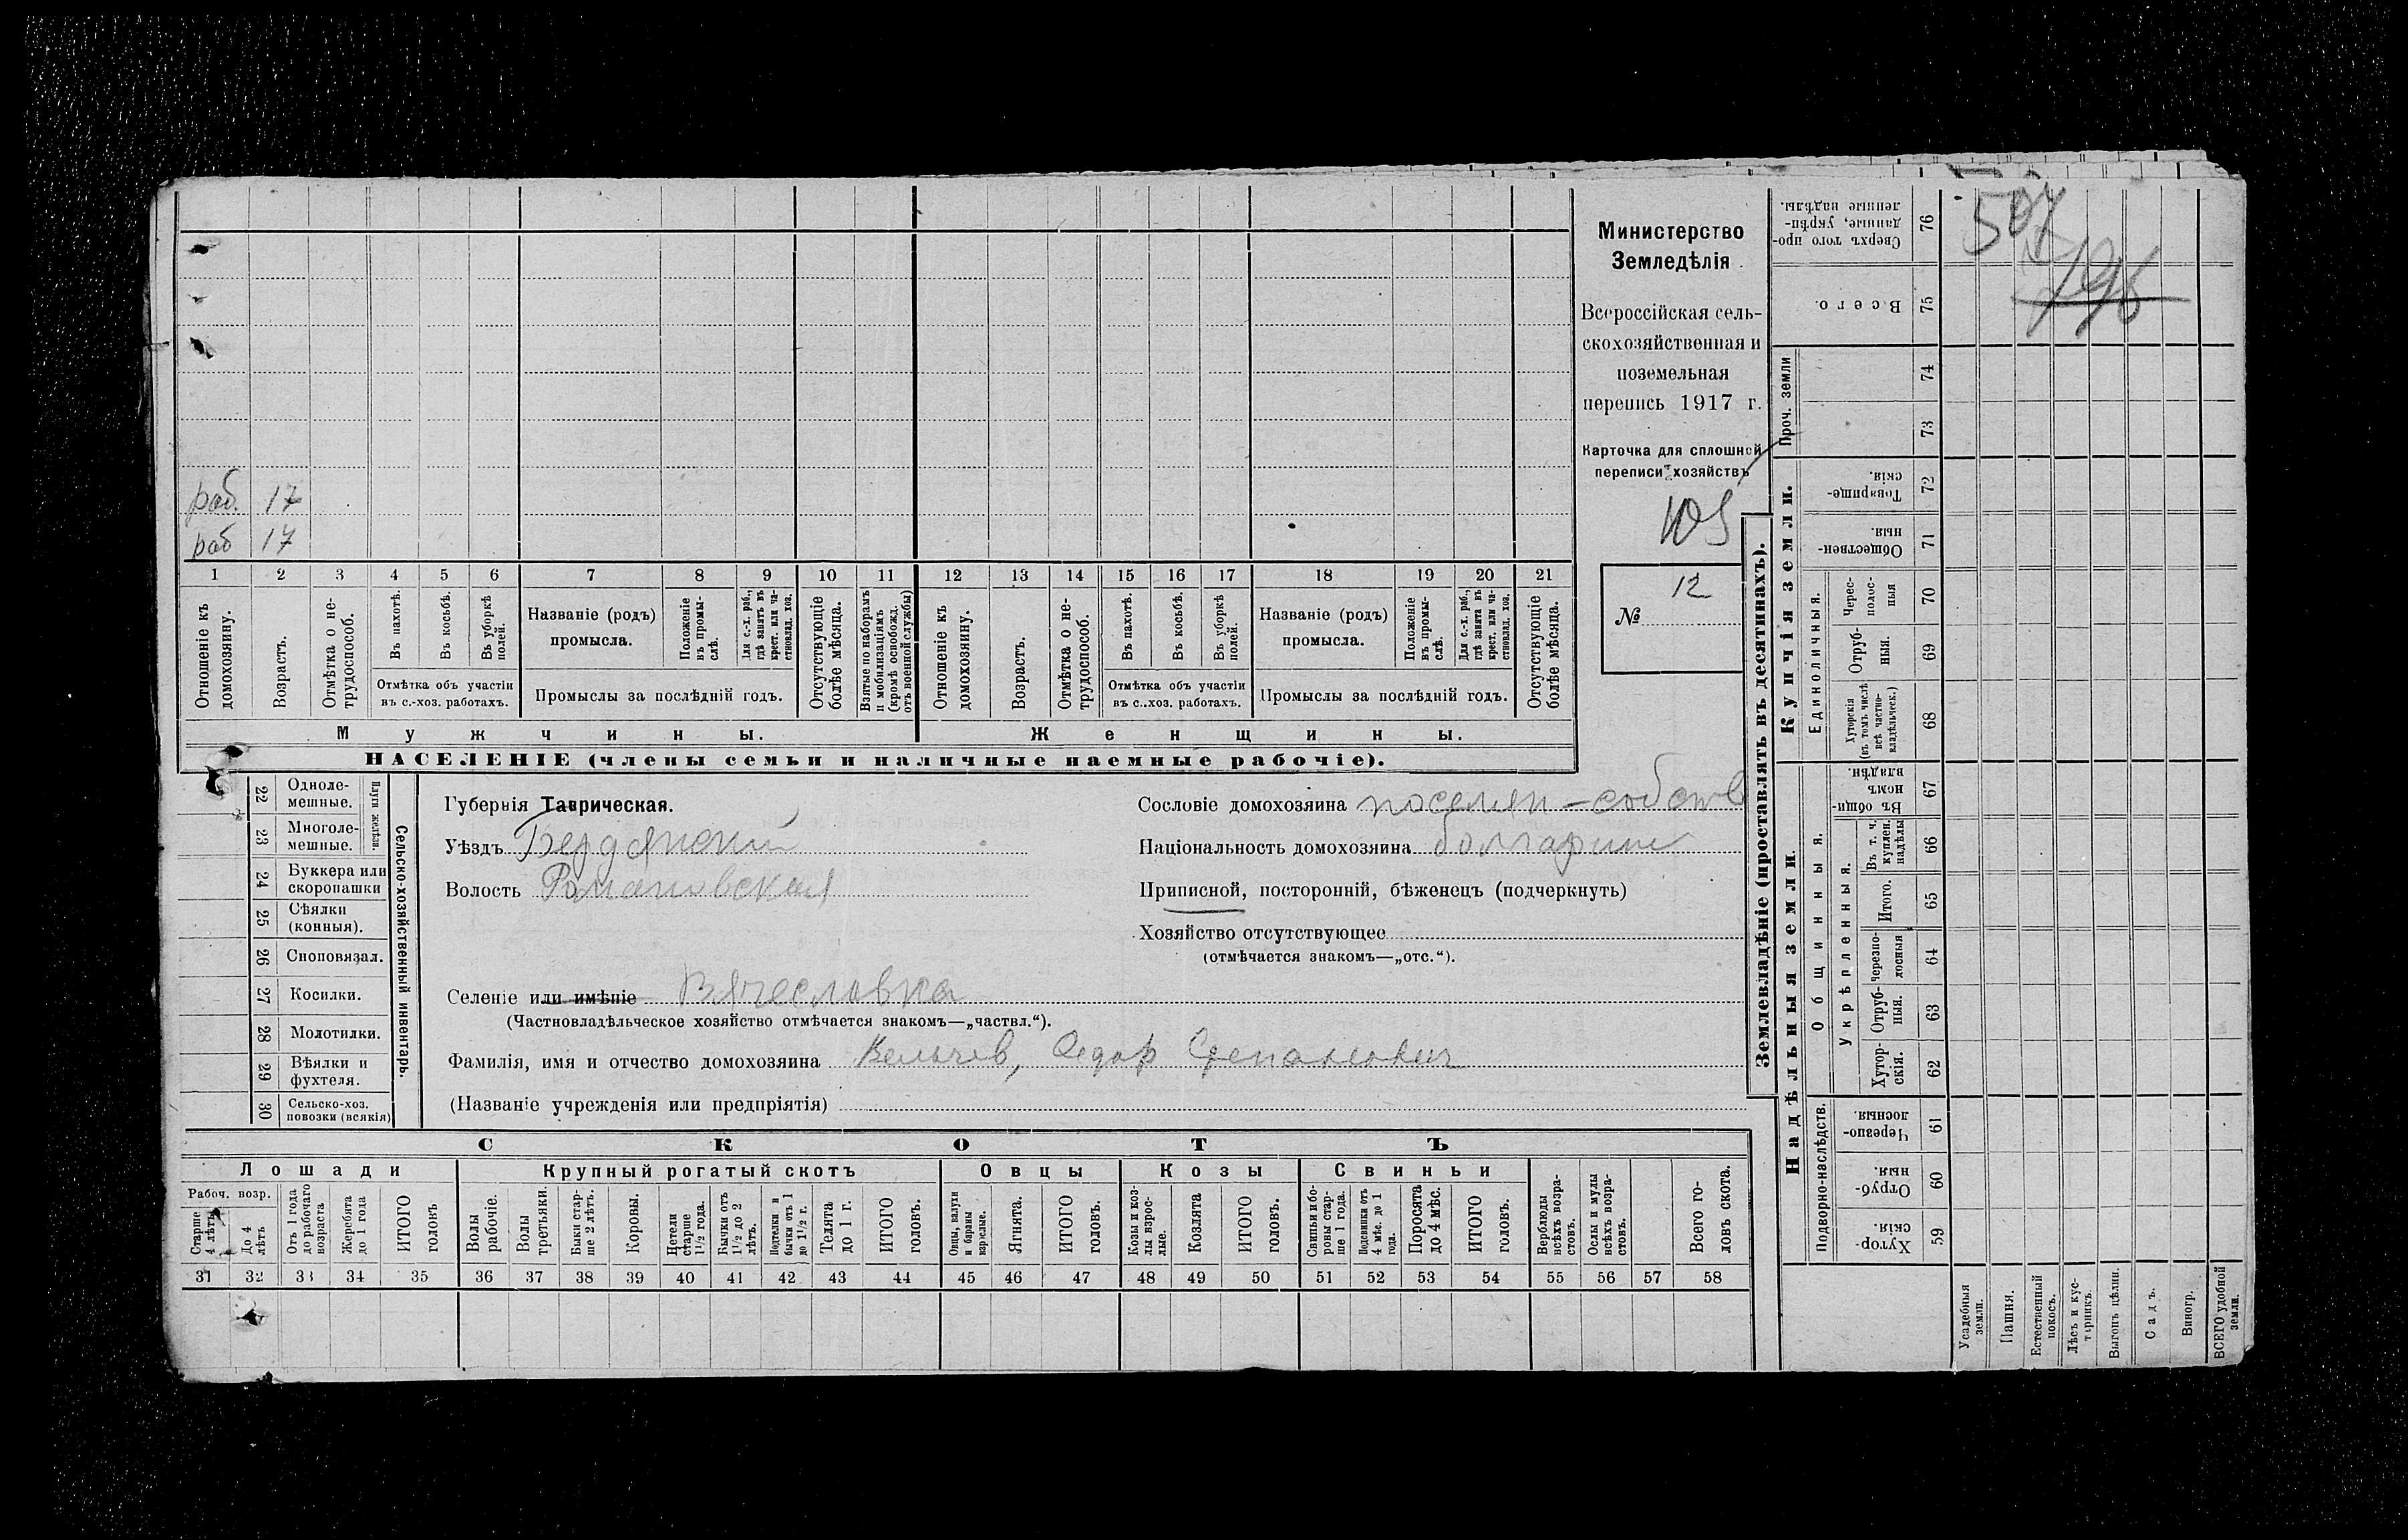 раб. 17
раб 17
1 2 3 4 5 6 7 8 9 10 11 12 13 14 15 16 17 18 19 20 21
Отношеніе къ домохозяину.
Возрастъ.
Отмѣтка о нетрудоспособ.
Въ пахотѣ.
Въ косьбѣ.
Въ уборкѣ полей.
Отмѣтка объ участіи
въ с.-хоз. работахъ.
Названіе (родъ)
промысла.
Положеніе въ промыслѣ.
Для с.-х. раб., гдѣ занятъ въ крест. или частновлад. хоз.
Промыслы за послѣдній годъ.
Отсутствующіе болѣе мѣсяца.
Взятые по наборамъ и мобилизаціямъ (кромѣ освобожд. отъ военной службы)
Отношеніе къ домохозяину.
Возрастъ.
Отмѣтка о нетрудоспособ.
Въ пахотѣ.
Въ косьбѣ.
Въ уборкѣ полей.
Отмѣтка объ участіи
въ с..хоз. работахъ.
Названіе (родъ)
промысла.
Положеніе въ промыслѣ.
Для с.-х. раб., гдѣ занята въ крест. или частновлад. хоз.
Промыслы за послѣдній годъ.
Отсутствующіе болѣе мѣсяца.
Мужчины.
Женщины.
НАСЕЛЕНІЕ (члены семьи и наличные наемные рабочіе).
Министерство
Земледѣлія
Всероссійская сель-
скохозяйственная и
поземельная
перепись 1917 г.
Карточка для сплошной
переписи хозяйствъ
№ 12
Сельско-хозяйственный инвентарь.
Плуги желѣзн.
22 Одноле-
мешные.
23 Многоле-
мешные.
24 Буккера или
скоропашки
25 Сѣялки
(конныя).
26 Сноповязал.
27 Косилки.
28 Молотилки.
29 Вѣялки и
фухтеля.
30 Сельско-хоз.
повозки (всякія)
Губернія Таврическая.
Уѣздъ Бердянский
Волость Романовская
Селеніе или имѣніе Вячеславка
(Частновладѣльческое хозяйство отмѣчается знакомъ—„частвл.“).
Фамилія, имя и отчество домохозяина Вельчев, Федор Степанович
(Названіе учрежденія или предпріятія)
Сословіе домохозяина поселян-собств
Національность домохозяина болгарин
Приписной, посторонній, бѣженецъ (подчеркнуть)
Хозяйство отсутствующее
(отмѣчается знакомъ—„отс.“).
СКОТЪ
Лошади
Рабоч. возр.
Старше 4 лѣтъ
До 4 лѣтъ
Отъ 1 года до рабочаго возраста
Жеребята до 1 года
ИТОГО головъ
Крупный рогатый скотъ
Волы рабочіе.
Волы третьяки.
Быки старше 2 лѣтъ.
Коровы.
Нетели старше 1 1/2 года.
Бычки отъ 1 1/2 до 2 лѣтъ.
Подтелки и бычки отъ 1 до 1 1/2 г.
Телята до 1 г.
ИТОГО головъ.
Овцы
Овцы, валухи и бараны взрослые.
Ягнята.
ИТОГО головъ.
Козы
Козы и козлы взрослые.
Козлята
ИТОГО головъ.
Свиньи
Свиньи и боровы старше 1 года.
Подсвинки отъ 4 мѣс. до 1 года.
Поросята до 4 мѣс.
ИТОГО головъ.
Верблюды всѣхъ возрастовъ.
Ослы и мулы всѣхъ возрастовъ.
Всего головъ скота.
31 32 33 34 35 36 37 38 39 40 41 42 43 44 45 46 47 48 49 50 51 52 53 54 55 56 57 58
Землевладѣніе (проставлять въ десятинахъ).
507
796
Сверхъ того проданные, укрѣпленные надѣлы. 76
Всего. 75
Проч. земли
74
73
Купчія земли.
Товарищескія. 72
Общественныя. 71
Единоличныя.
Чересполосныя 70
Отрубныя. 69
Хуторскія (въ томъ числѣ всѣ частновладѣльческ.) 68
Надѣльныя земли
Общинныя.
Въ общинномъ владѣн. 67
Укрѣпленныя.
Въ т. ч. куплен. надѣлы 66
Итого. 65
Черезполосныя 64
Отрубныя. 63
Хуторскія. 62
Подворно-наслѣдств.
Черезполосныя. 61
Отрубныя. 60
Хуторскія. 59
Усадебныя земли.
Пашня.
Естественный покосъ.
Лѣсъ и кустарникъ.
Выгонъ цѣлин.
Садъ.
Виногр.
ВСЕГО удобной земли.